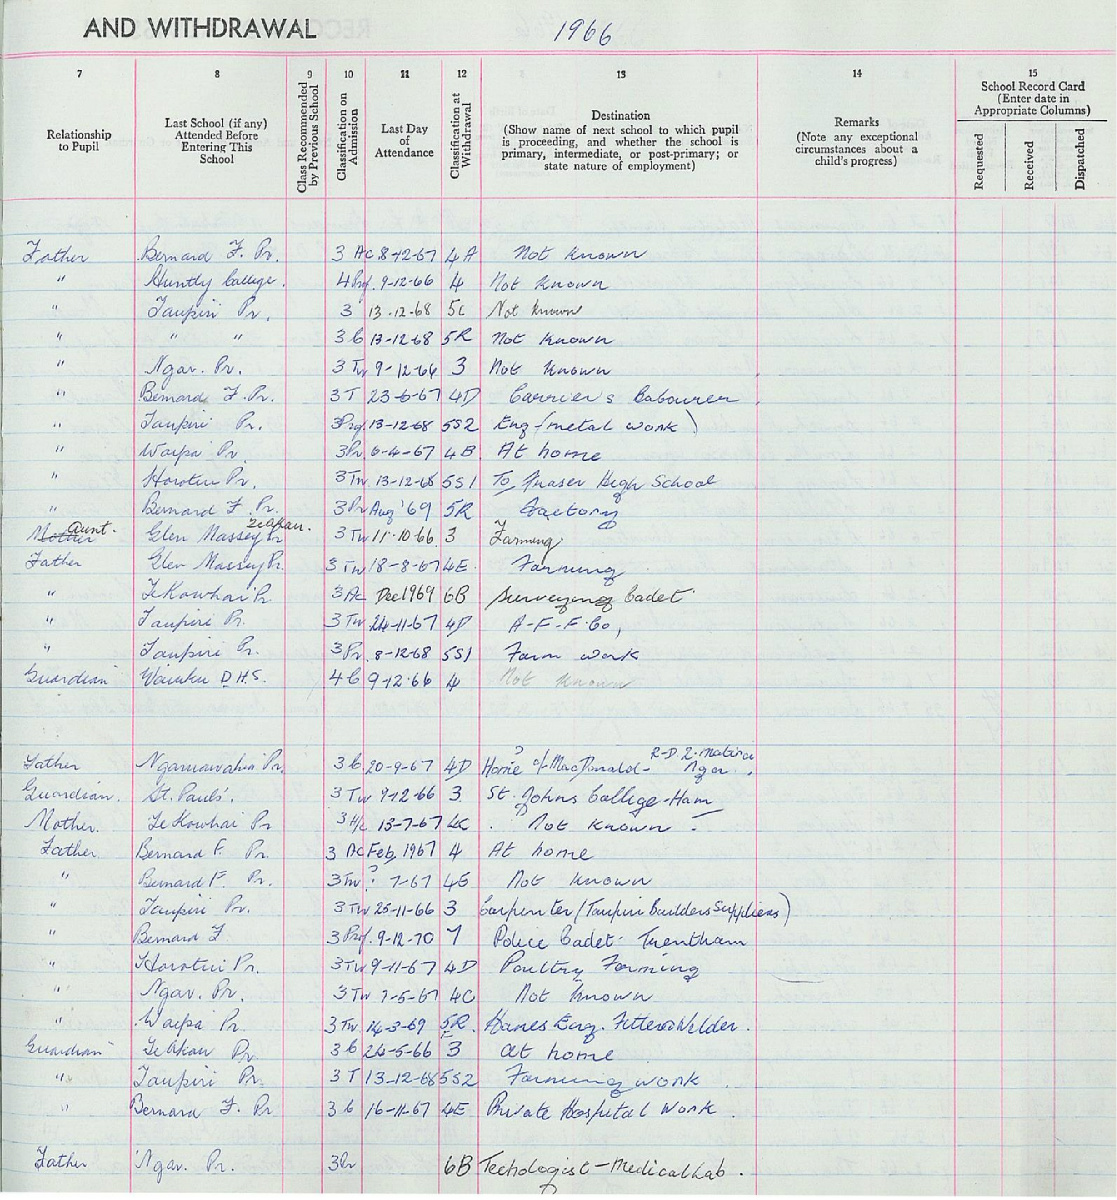 AND WITHDRAWAL 1966
7 8 9 10 11 12 13 14 15
Relationship to Pupil
Last School (if any) Attended Before Entering This School
Class Recommended by Previous School
Classification on Admission
Last Day of Attendance
Classification at Withdrawal
Destination
(Show name of next school to which pupil is proceeding, and whether the school is primary, intermediate, or post-primary; or state nature of employment)
Remarks
(Note any exceptional circumstances about a child's progress)
School Record Card
(Enter date in Appropriate Columns)
Requested
Received
Dispatched
Father Bernard F. Pr. 3 Ac 8-12-67 4A Not known
" Huntly College. 4 Prof. 9-12-66 4 Not known
" Taupiri Pr. 3 13-12-68 5C Not known
" " " 3 C 13-12-68 5R Not known
" Ngar. Pr. 3 Tw 9-12-66 3 Not known
" Bernard F. Pr. 3 T 23-6-67 4D Carrier's Labourer
" Taupiri Pr. 13-12-68 5S2 Eng (metal work)
" Waipa Pr. 3 Pr 6-4-67 4B At home
" Horotiu Pr. 3 Tw 13-12-68 5S1 To Fraser High School
" Bernard F Pr. 3 Pr Aug '69 5R Factory
Mother Aunt. Glen Massey Pr Te Akau. 3 Tw 11-10-66 3 Farming
Father Glen Massey Pr. 3 Tw 18-8-67 4E. Farming
" Te Kowhai Pr 3 Ac Dec 1969 6B Surveying Cadet
" Taupiri Pr. 3 Tw 24-11-67 4D A-F-F-Co,
" Taupiri Pr. 3 Pr. 8-12-68 5S1 Farm work
Guardian Waiuku D.H.S. 4 C 9-12-66 4 Not known
Father Ngaruawahia Pr. 3 C 20-9-67 4D Home ? c/- MacDonald- R-D 2. Ngar.
Guardian. St. Pauls'. 3 Tw 9-12-66 3. St. Johns College-Ham
Mother. Te Kowhai Pr 3 H/c 13-7-67 4C. Not known.
Father. Bernard F. Pr. 3 AC Feb, 1967 4 At home
" Bernard F. Pr. 3 Tw ? 7-67 4E Not known
" Taupiri Pr. 3 Tw 25-11-66 3 Carpenter (Taupiri Builders Suppliers)
" Bernard F 3 Prof. 9-12-70 7 Police Cadet- Trentham
" Horotiu Pr. 3 Tw 9-11-67 4D Poultry Farming
" Ngar. Pr. 3 Tw 7-5-67 4C Not known
" Waipa Pr. 3 Tw 14-3-69 5R. Hanes Eng. Fitter & Welder.
Guardian Te Akau Pr. 3 C 24-5-66 3 at home
" Taupiri Pr. 3 T 13-12-68 5S2 Farming work
" Bernard F. Pr 3 C 16-11-67 4E Private Hospital Work.
Father Ngar. Pr. 3 Pr 6B Techologist-Medical Lab.